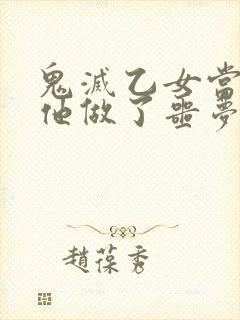 鬼滅乙女當
他做了噩夢
趙葆秀